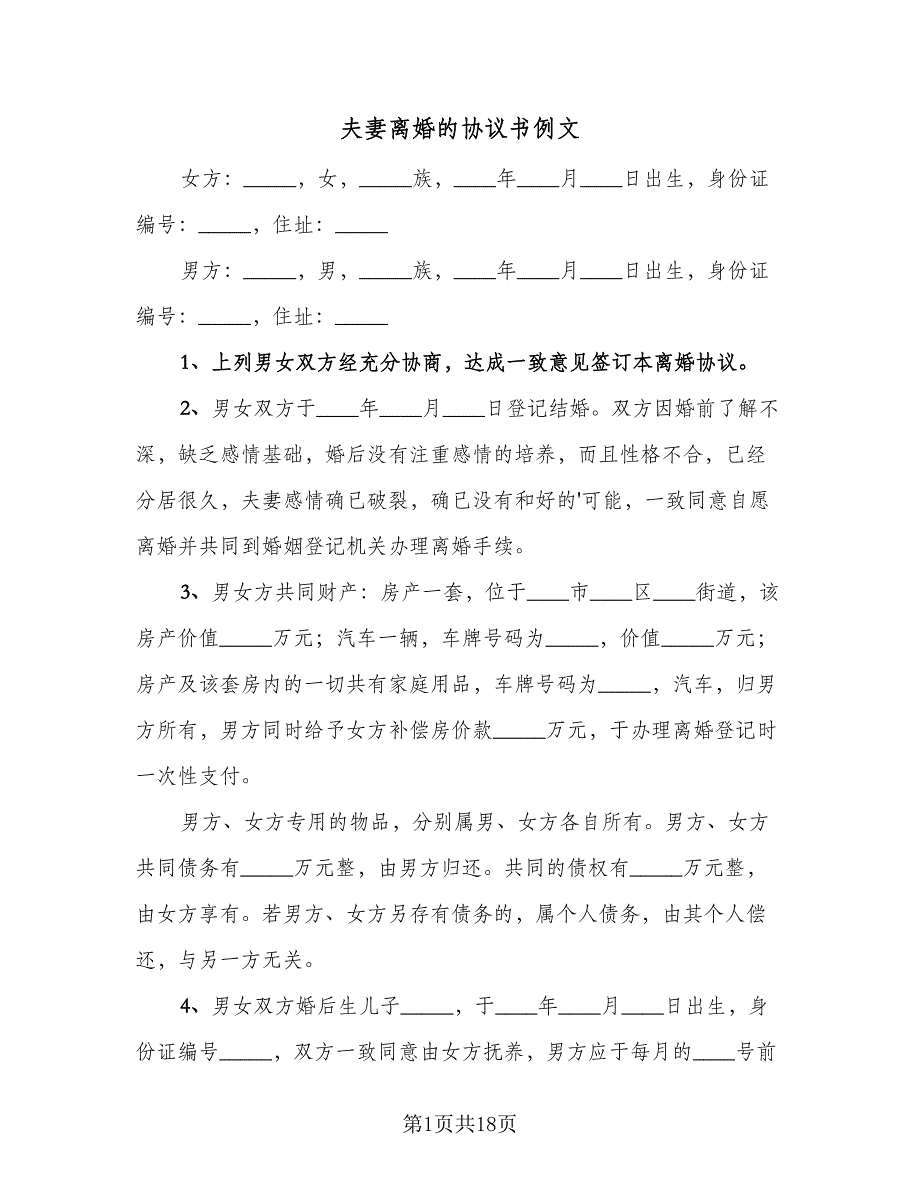 夫妻离婚的协议书例文
女方：_____，女，_____族，____年____月____日出生，身份证
编号：_____，住址：_____
男方：_____，男，_____族，____年____月____日出生，身份证
编号：_____，住址：_____
1、上列男女双方经充分协商，达成一致意见签订本离婚协议。
2、男女双方于____年____月____日登记结婚。双方因婚前了解不
深，缺乏感情基础，婚后没有注重感情的培养，而且性格不合，已经
分居很久，夫妻感情确已破裂，确已没有和好的'可能，一致同意自愿
离婚并共同到婚姻登记机关办理离婚手续。
3、男女方共同财产：房产一套，位于____市____区____街道，该
房产价值_____万元；汽车一辆，车牌号码为_____，价值_____万元；
房产及该套房内的一切共有家庭用品，车牌号码为_____，汽车，归男
方所有，男方同时给予女方补偿房价款_____万元，于办理离婚登记时
一次性支付。
男方、女方专用的物品，分别属男、女方各自所有。男方、女方
共同债务有_____万元整，由男方归还。共同的债权有_____万元整，
由女方享有。若男方、女方另存有债务的，属个人债务，由其个人偿
还，与另一方无关。
4、男女双方婚后生儿子_____，于____年____月____日出生，身
份证编号_____，双方一致同意由女方抚养，男方应于每月的____号前
第1页共18页